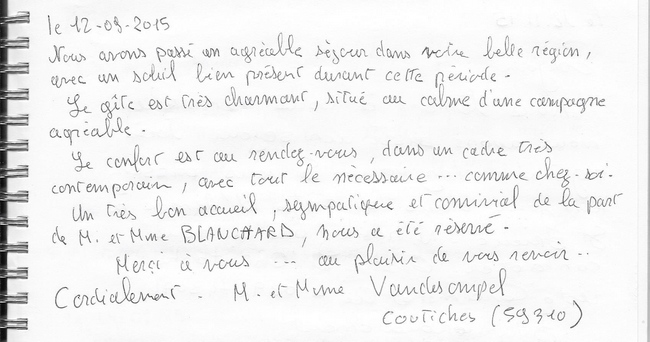 le 12-09-2015
Nous avons passé un agréable séjour dans votre belle région,
avec un soleil bien présent durant cette période -
Le gîte est très charmant, situé au calme d'une campagne
agréable -
Le confort est au rendez-vous, dans un cadre très
contemporain, avec tout le nécessaire ... comme chez-soi-
Un très bon accueil, sympatique et convivial de la part
de M. et Mme BLANCHARD, nous a été réservé -
Merci à vous ... au plaisir de vous revoir ..
Cordialement - M. et Mme Vandesompel
Coutiches (59310)